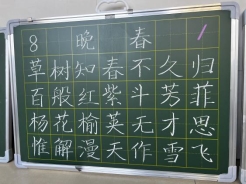 8 晚春 1
草树知春不久归
百般红紫斗芳菲
杨花榆荚无才思
惟解漫天作雪飞